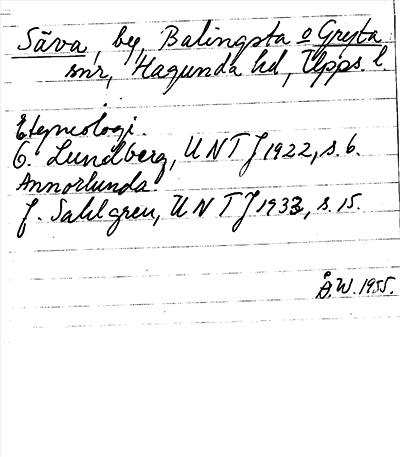 Säva, by, Balingsta o Gryta
snr, Hagunda hd, Upps. l.
Etymologi.
O. Lundberg, UNTJ 1922, s. 6.
Annorlunda
J. Sahlgren, UNTJ 1933, s. 15.
Å.W. 1955.